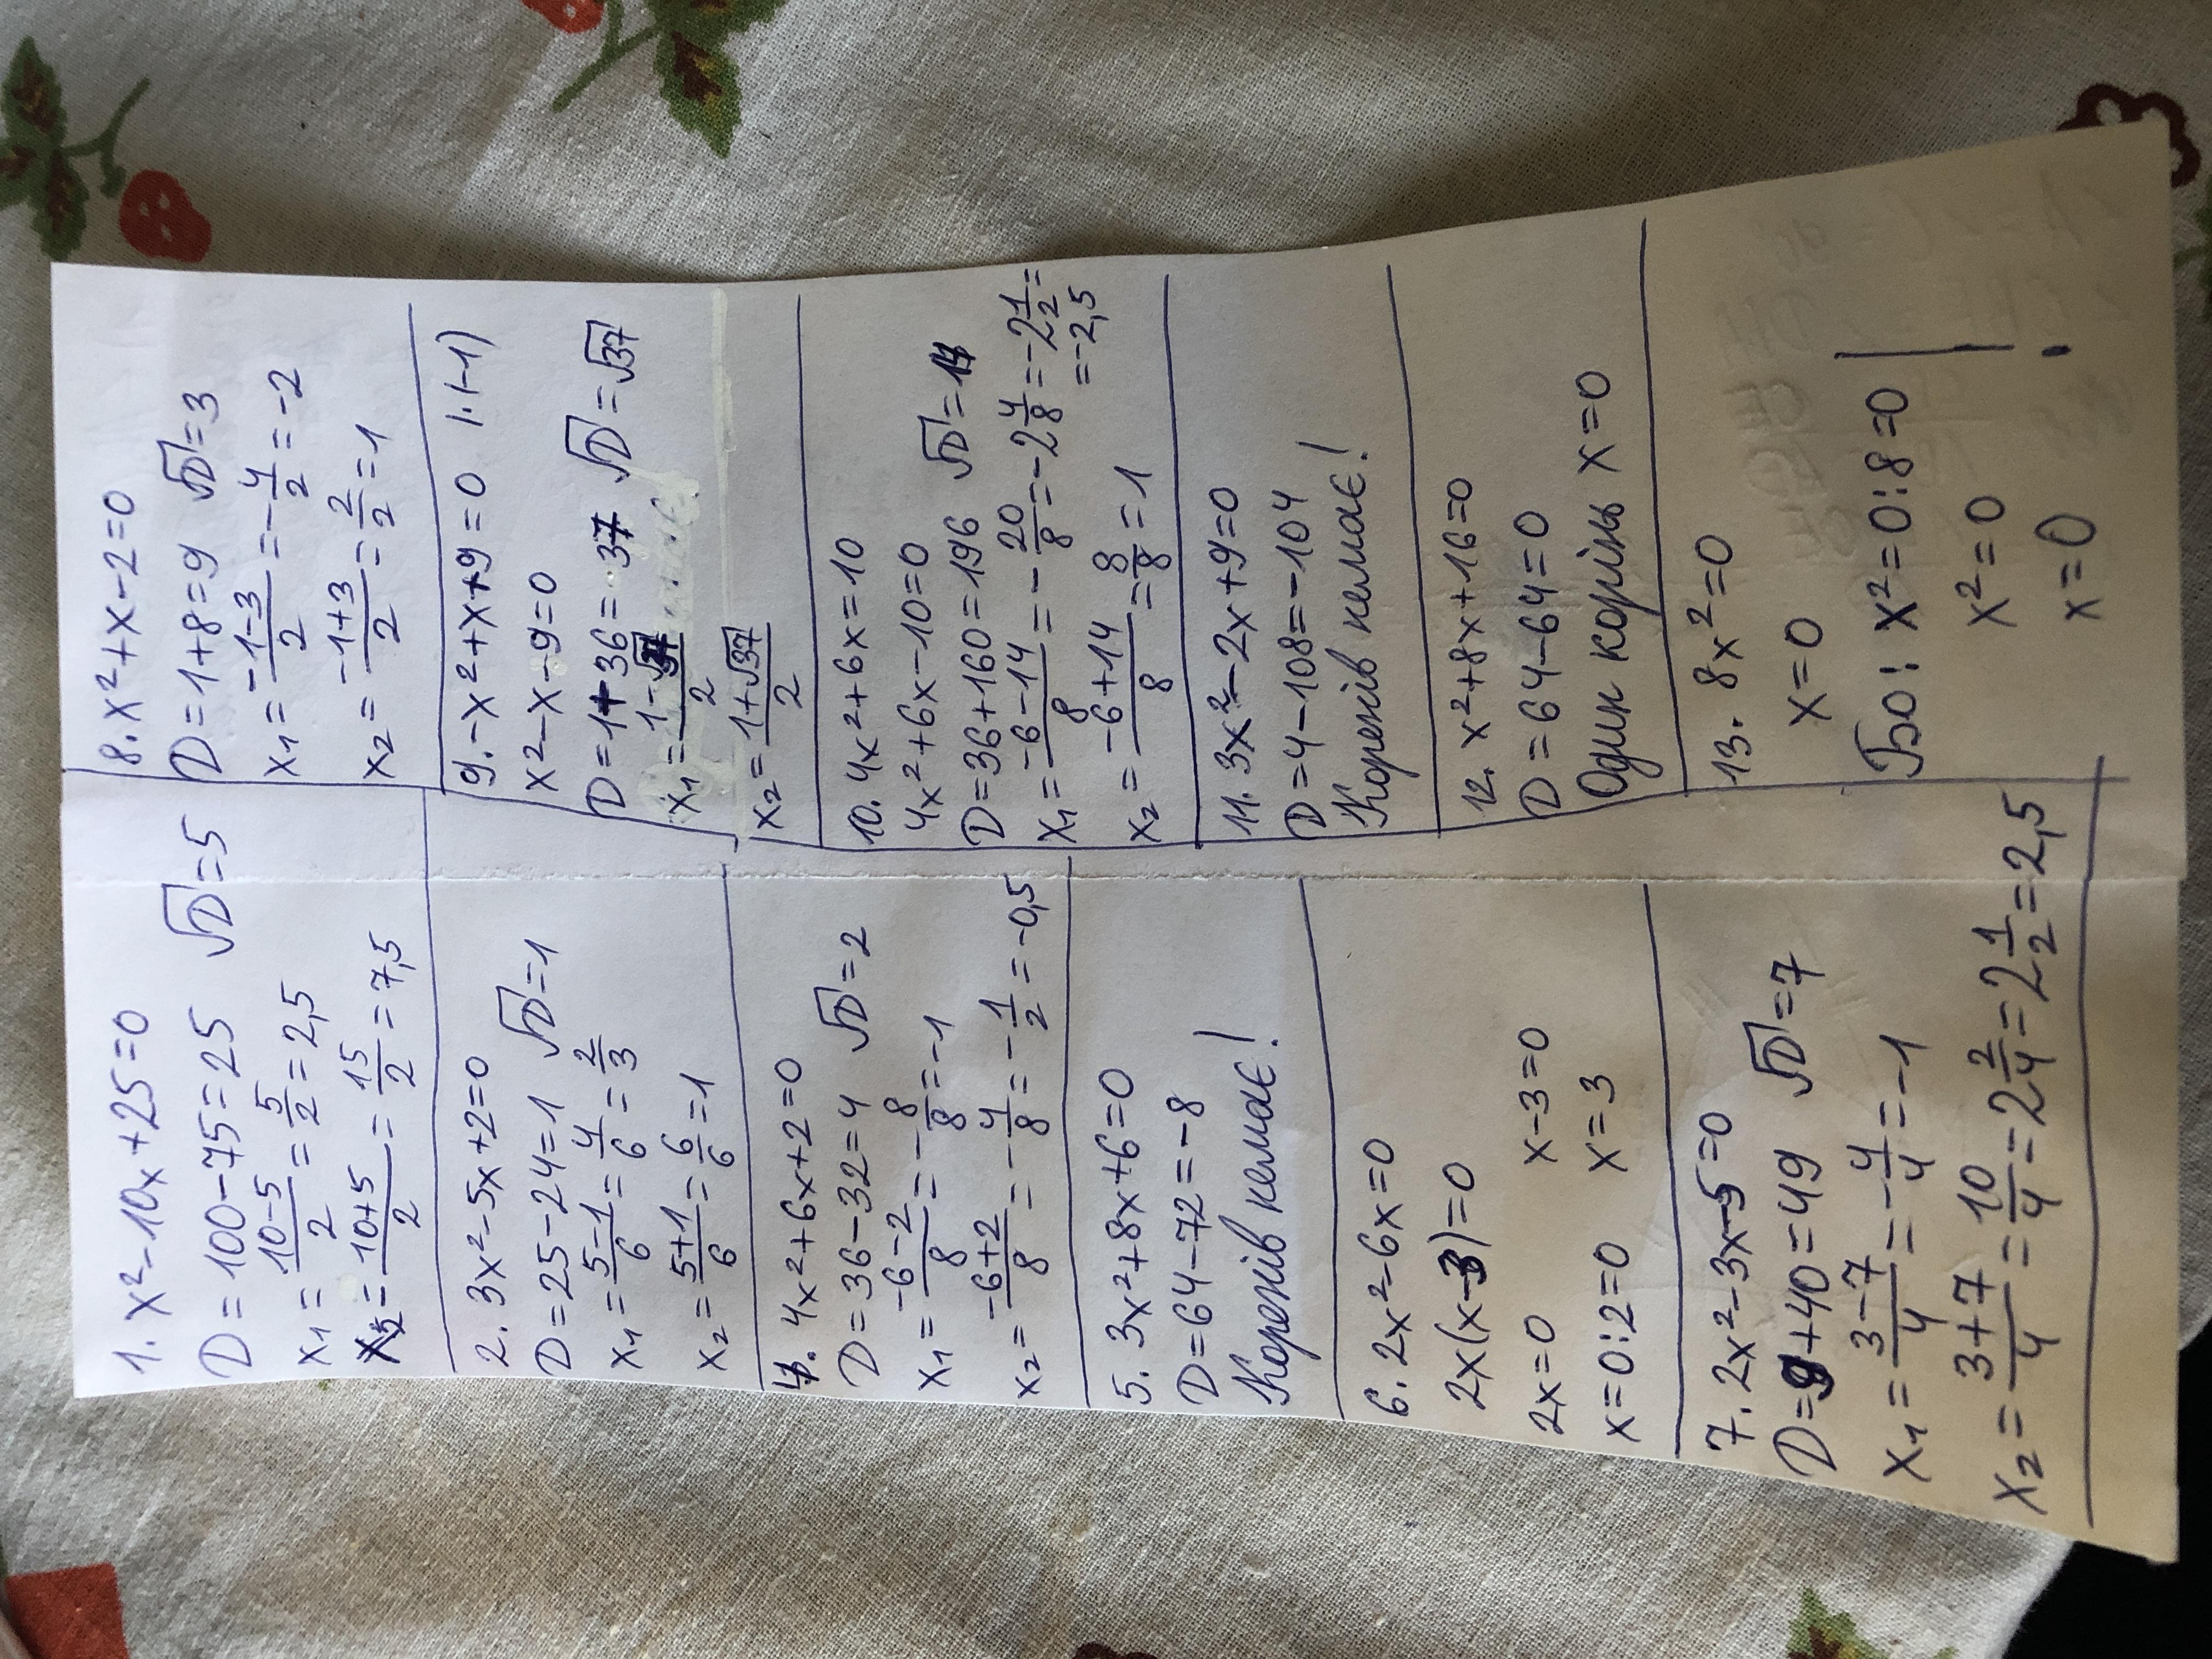 1. x²-10x+25=0
D=100-75=25 √D=5
x₁=(10-5)/2=5/2=2,5
x₂=(10+5)/2=15/2=7,5
2. 3x²-5x+2=0
D=25-24=1 √D=1
x₁=(5-1)/6=4/6=2/3
x₂=(5+1)/6=6/6=1
4. 4x²+6x+2=0
D=36-32=4 √D=2
x₁=(-6-2)/8=-8/8=-1
x₂=(-6+2)/8=-4/8=-1/2=-0,5
5. 3x²+8x+6=0
D=64-72=-8
Коренів немає!
6. 2x²-6x=0
2x(x-3)=0
2x=0 x-3=0
x=0:2=0 x=3
7. 2x²-3x-5=0
D=9+40=49 √D=7
x₁=(3-7)/4=-4/4=-1
x₂=(3+7)/4=10/4=2 2/4=2 1/2=2,5
8. x²+x-2=0
D=1+8=9 √D=3
x₁=(-1-3)/2=-4/2=-2
x₂=(-1+3)/2=2/2=1
9. -x²+x+9=0 |·(-1)
x²-x-9=0
D=1+36=37 √D=√37
x₁=(1-√37)/2
x₂=(1+√37)/2
10. 4x²+6x=10
4x²+6x-10=0
D=36+160=196 √D=14
x₁=(-6-14)/8=-20/8=-2 4/8=-2 1/2=
=-2,5
x₂=(-6+14)/8=8/8=1
11. 3x²-2x+9=0
D=4-108=-104
Коренів немає!
12. x²+8x+16=0
D=64-64=0
Один корінь x=0
13. 8x²=0
x=0
Бо: x²=0:8=0
x²=0
x=0 !